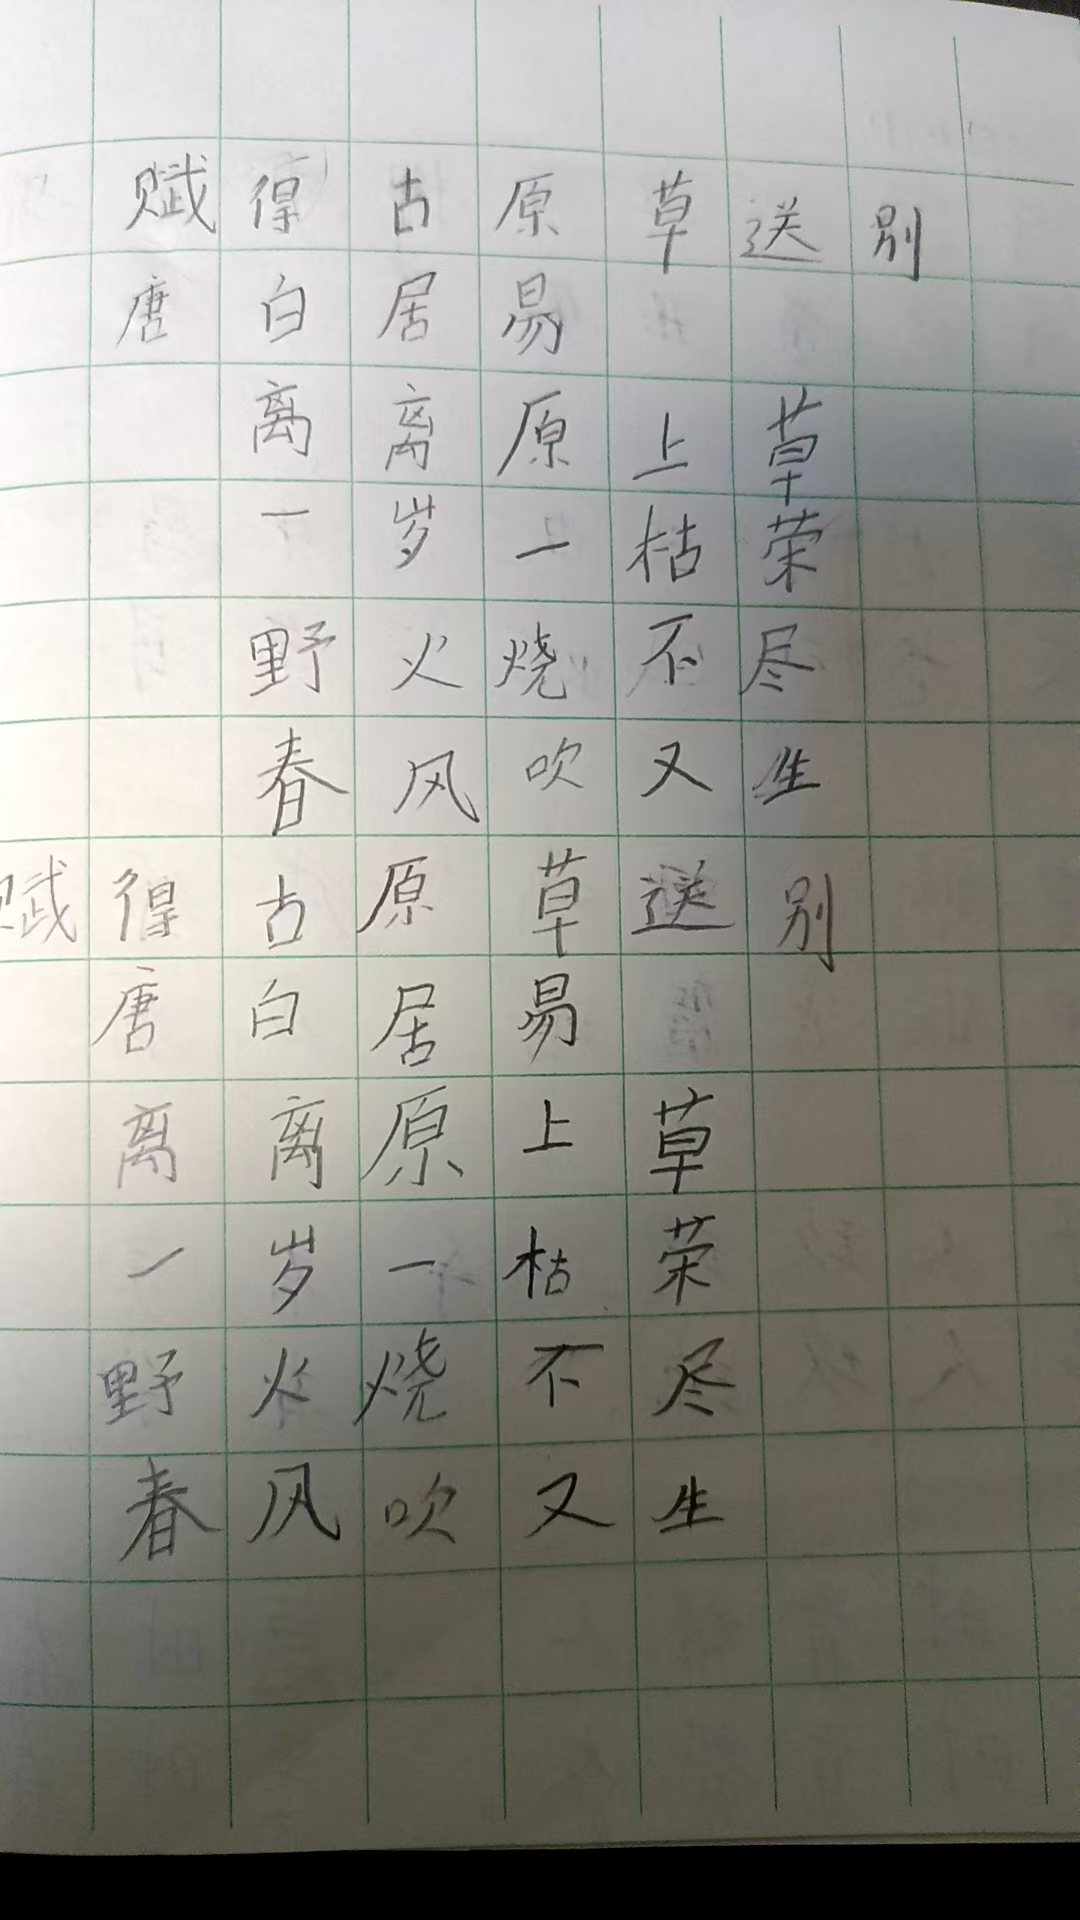 赋得古原草送别
唐白居易
离离原上草
一岁一枯荣
野火烧不尽
春风吹又生
赋得古原草送别
唐白居易
离离原上草
一岁一枯荣
野火烧不尽
春风吹又生